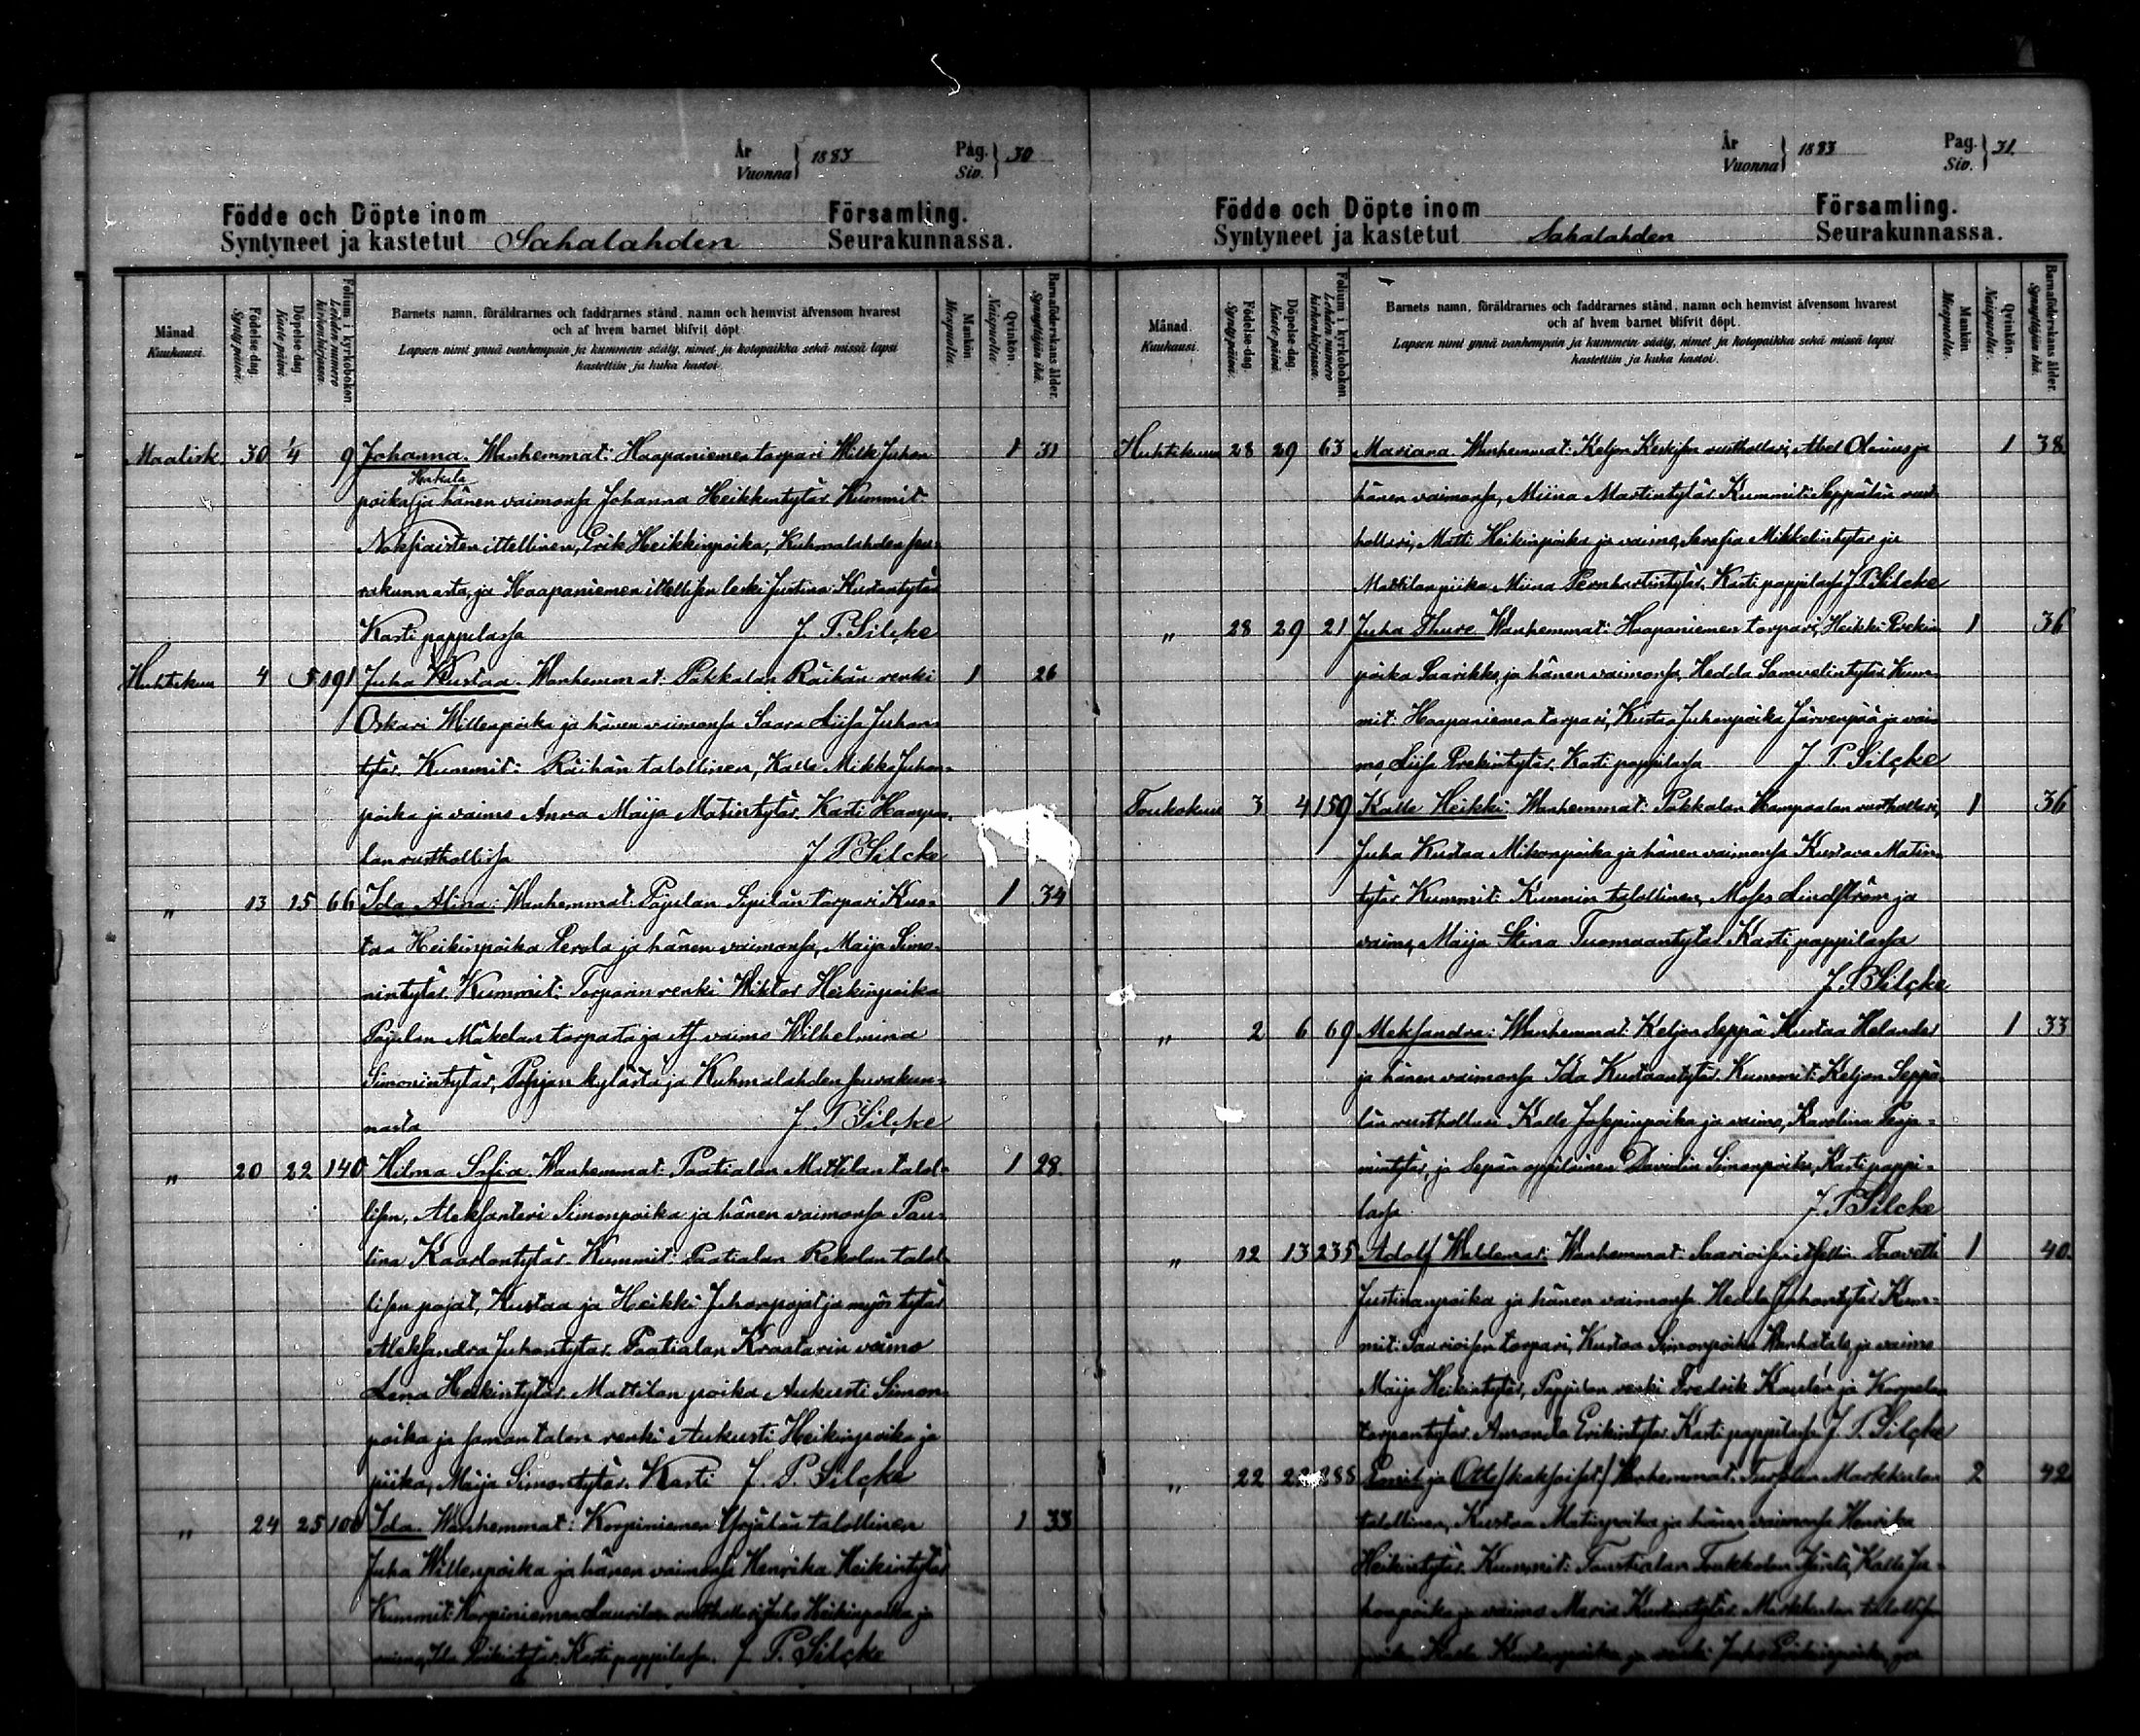 År
Vuonna } 1883 Pag.
Siv. } 30
Födde och Döpte inom Församling.
Syntyneet ja kastetut Sahalahden Seurakunnassa.
Månad. Kuukausi.
Födelse-dag. Syntypäivä.
Döpelse-dag. Kaste-päivä.
Folium i kyrkoboken. Lehden numero kirkonkirjassa.
Barnets namn, föräldrarnes och faddrarnes stånd, namn och hemvist äfvensom hvarest
och af hvem barnet blifvit döpt.
Lapsen nimi ynnä vanhempain ja kummein sääty, nimet ja kotopaikka sekä missä lapsi
kastettiin ja kuka kastoi.
Mankön. Miespuolia.
Qvinkön. Naispuolia.
Barnaföderskans ålder. Synnyttäjän ikä.
Maalisk. 30 1/4 9 Johanna. Wanhemmat: Haapaniemen torpari Wille Juhan 1 31
poika (ja hänen vaimonsa Johanna Heikkintytär Kummit
ittellinen, Erik Heikkinpoika, Kuhmalahden seu-
rakunnasta, ja Haapaniemen ittellisen leski Justina Kustantytär
Kasti pappilassa J. P. Silcke
Huhtikuu 4 5 191 Juha Kustaa. Wanhemmat: Pakkalan Räihän renki 1 26
Oskari Willenpoika ja hänen vaimonsa Saara Liisa Juhan-
tytär. Kummit: Räihän talollinen, Kalle Mikko Juhan-
poika ja vaimo Anna Maija Matintytär. Kasti Hampa-
lan rusthollissa J P Silcke
" 13 15 66 Ida Alina: Wanhemmat: Pajulan Sipilän torpari Kus-
taa Heikinpoika Perola ja hänen vaimonsa, Maija Simo- 1 34
nintytär. Kummit: Torparin renki Wiktor Heikinpoika
Pajulan Mäkelan torpasta ja vaimo Wilhelmina
Simonintytär, Pohjan kylästä ja Kuhmalahden seurakun-
nasta J. P Silcke
" 20 22 140 Hilma Sofia. Wanhemmat: Paatialan Mattilan talol- 1 28.
lisen, Aleksanteri Simonpoika ja hänen vaimonsa Pau-
lina Kaarlontytär. Kummit: Paatialan Rekolan talol-
lisen pojat, Kustaa ja Heikki Juhanpojat ja myös tytär
Aleksandra Juhontytar. Paatialan Kraatarin vaimo
Lena Heikintytär. Mattilan poika Aukusti Simon-
poika ja saman talon renki Aukusti Heikinpoika ja
piika, Maija Simontytär. Kasti J. P. Silcke
" 24 25 100 Ida. Wanhemmat: Korpiniemen Yrjälän talollinen 1 33
Juha Willenpoika ja hänen vaimonsa Henrika Heikintytär
Kummit: Korpiniemen Laurilan rusthollari Juho Heikinpoika ja
vaimo, Ida Kasti pappilassa. J P. Silcke
År
Vuonna } 1883 Pag.
Siv. } 31.
Födde och Döpte inom Församling.
Syntyneet ja kastetut Sahalahden Seurakunnassa.
Månad. Kuukausi.
Födelse-dag. Syntypäivä.
Döpelse-dag. Kaste-päivä.
Folium i kyrkoboken. Lehden numero kirkonkirjassa.
Barnets namn, föräldrarnes och faddrarnes stånd, namn och hemvist äfvensom hvarest
och af hvem barnet blifvit döpt.
Lapsen nimi ynnä vanhempain ja kummein sääty, nimet ja kotopaikka sekä missä lapsi
kastettiin ja kuka kastoi.
Mankön. Miespuolia.
Qvinkön. Naispuolia.
Barnaföderskans ålder. Synnyttäjän ikä.
Huhtikuu 28 29 63 Mariana Wanhemmat: Keljon rusthollari, Abel ja 1 38
hänen vaimonsa, Miina Martintytär. Kummit: Seppälän rust-
hollari, Matti Heikinpoika ja vaimo, Serafia Mikkelintytär ja
Mattilan piika Miina Kasti pappilassa J P Silcke
" 28 29 21 Juha Thure Wanhemmat: Haapaniemen torpari, Heikki 1 36
poika Saarikko, ja hänen vaimonsa, Hedda Samuelintytär Kum-
mit: Haapaniemen torpari, Kustaa Juhanpoika Järvenpää ja vai-
mo, Liisa Kasti pappilassa J. P. Silcke
Toukokuu 3 4 159 Kalle Heikki: Wanhemmat: Pakkalan Hampaalan rusthollari, 1 36
Juha Kustaa Mikonpoika ja hänen vaimonsa Kustava Matin-
tytär Kummit: Kummin talollinen, Moses Lindström ja
vaimo, Maija Stina Tuomaantytär Kasti pappilassa
J. P Silcke
" 2 6 69 Aleksandra: Wanhemmat: Keljon Seppä Kustaa Helander 1 33
ja hänen vaimonsa Ida Kustaantytär. Kummit: Keljon Seppä-
län rusthollari Kalle Josepinpoika ja vaimo, Karolina
ja Sepän oppilainen Davidin Simonpoika, Kasti pappi-
lassa J. P Silcke
" 12 13 235 Adolf Waldemar: Wanhemmat: Saarioisen Taavetti 1 40.
Justinanpoika ja hänen vaimonsa Hedda Juhantytär Kum-
mit: Saarioisen torpari, Kustaa Simonpoika Wanhatalo, ja vaimo
Maija Heikintytär, Pappilan renki Fredrik ja Korpelan
torpantytär Amanda Erikintytär Kasti pappilassa J. P. Silcke
" 22 288 Emil ja Otto (kaksoiset) Wanhemmat: Markkulan 2 42
talollinen, Kustaa Matinpoika ja hänen vaimonsa Henrika
Heikintytär. Kummit: Kalle Ju-
hanpoika ja vaimo Maria Kustantytär. Markkulan talollisen
poika Kalle Kustanpoika ja renki Juho ja